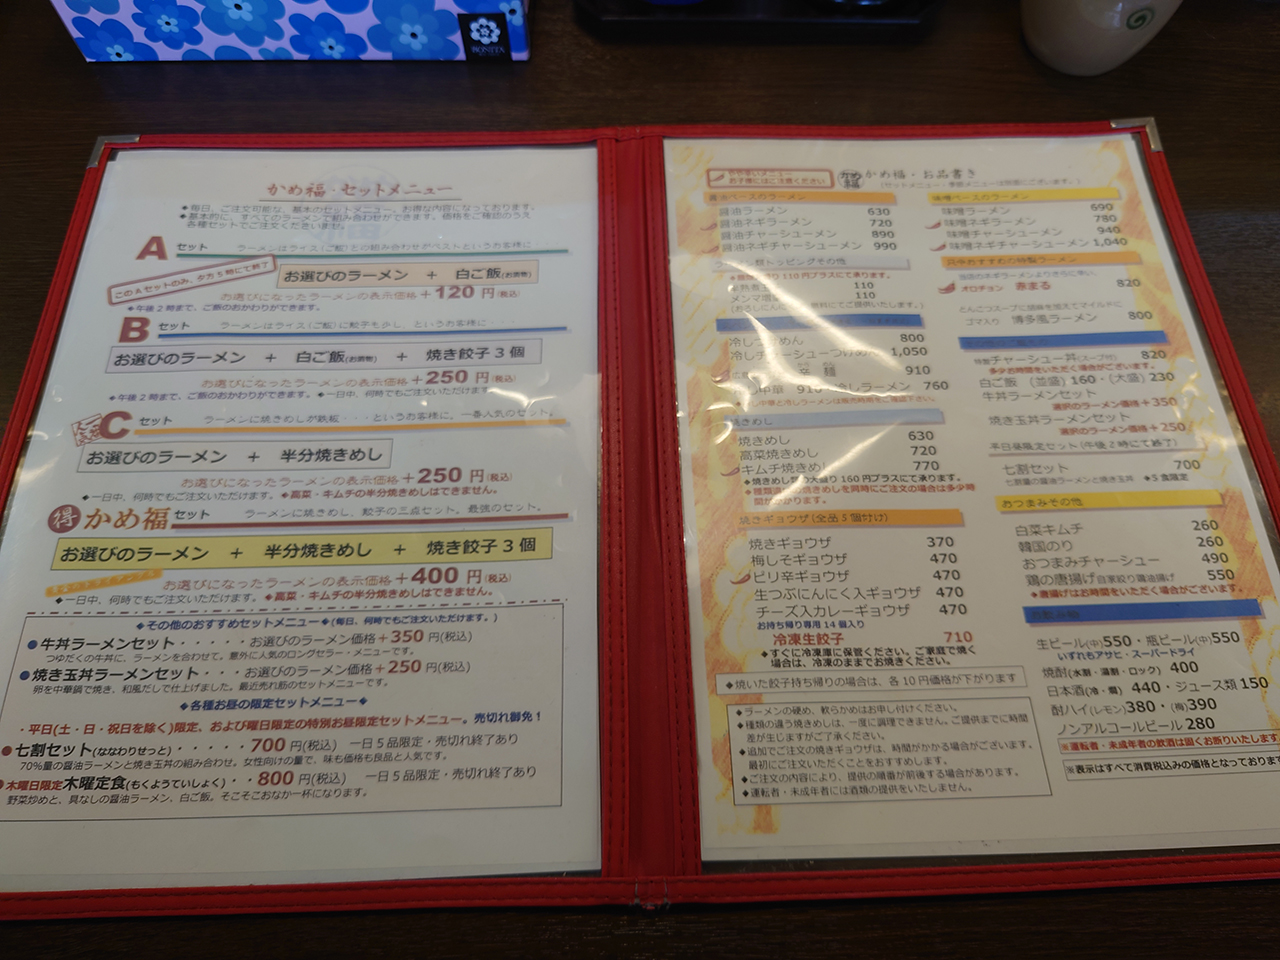 BONITA
かめ福・セットメニュー
◆毎日、ご注文可能な、基本のセットメニュー。お得な内容になっております。
◆基本的に、すべてのラーメンで組み合わせができます。価格をご確認のうえ
各種セットでご注文なさいませ。
A セット ラーメンはライス(ご飯)との組み合わせがベストというお客様に・・・
このAセットのみ、夕方5時にて終了
お選びのラーメン + 白ご飯(お漬物)
お選びになったラーメンの表示価格+120円(税込)
◆午後2時まで、ご飯のおかわりができます。
B セット ラーメンはライス(ご飯)に餃子も少し、というお客様に・・・
お選びのラーメン + 白ご飯(お漬物) + 焼き餃子3個
お選びになったラーメンの表示価格+250円(税込)
◆午後2時まで、ご飯のおかわりができます。◆一日中、何時でもご注文いただけます。
C セット ラーメンに焼きめしが鉄板・・・というお客様に、一番人気のセット。
お選びのラーメン + 半分焼きめし
お選びになったラーメンの表示価格+250円(税込)
◆一日中、何時でもご注文いただけます。◆高菜・キムチの半分焼きめしはできません。
得 かめ福 セット ラーメンに焼きめし、餃子の三点セット。最強のセット。
お選びのラーメン + 半分焼きめし + 焼き餃子3個
お選びになったラーメンの表示価格+400円(税込)
◆一日中、何時でもご注文いただけます。◆高菜・キムチの半分焼きめしはできません。
◆その他のおすすめセットメニュー◆(毎日、何時でもご注文いただけます。)
●牛丼ラーメンセット・・・・・お選びのラーメン価格+350円(税込)
つゆだくの牛丼に、ラーメンを合わせて。意外に人気のロングセラー・メニューです。
●焼き玉丼ラーメンセット・・・お選びのラーメン価格+250円(税込)
卵を中華鍋で焼き、和風だしで仕上げました。最近売れ筋のセットメニューです。
◆各種お昼の限定セットメニュー◆
・平日(土・日・祝日を除く)限定、および曜日限定の特別お昼限定セットメニュー。売切れ御免!
●七割セット(ななわりせっと)・・・・・700円(税込) 一日5品限定・売切れ終了あり
70%量の醤油ラーメンと焼き玉丼の組み合わせ。女性向けの量で、味も価格も良品と人気です。
●木曜日限定木曜定食(もくようていしょく)・・800円(税込) 一日5品限定・売切れ終了あり
野菜炒めと、具なしの醤油ラーメン、白ご飯。そこそこおなか一杯になります。
やや辛いメニュー
お子様にはご注意ください
かめ福 かめ福・お品書き
(セットメニュー・季節メニューは別紙にございます。)
醤油ベースのラーメン
醤油ラーメン 630
醤油ネギラーメン 720
醤油チャーシューメン 890
醤油ネギチャーシューメン 990
110円プラスにて承ります。
110
メンマ増量 110
冷しつけめん 800
冷しチャーシューつけめん 1,050
辛麺 910
中華 910 冷しラーメン 760
焼きめし
焼きめし 630
高菜焼きめし 720
キムチ焼きめし 770
◆焼きめし類の大盛り160円プラスにて承ります。
◆種類違いの焼きめしを同時にご注文の場合は多少時
間がかかります。
焼きギョウザ(全品5個付け)
焼きギョウザ 370
梅しそギョウザ 470
ピリ辛ギョウザ 470
生つぶにんにく入ギョウザ 470
チーズ入カレーギョウザ 470
お持ち帰り専用14個入り
冷凍生餃子 710
◆すぐに冷凍庫に保管ください。ご家庭で焼く
場合は、冷凍のままでお焼きください。
◆焼いた餃子持ち帰りの場合は、各10円価格が下がります
◆ラーメンの硬め、軟らかめはお申し付けください。
◆種類の違う焼きめしは、一度に調理できません。ご提供までに時間
差が生じますがご了承ください。
◆追加でご注文の焼きギョウザは、時間がかかる場合がございます。
最初にご注文いただくことをおすすめします。
◆ご注文の内容により、提供の順番が前後する場合があります。
◆運転者・未成年者には酒類の提供をいたしません。
味噌ベースのラーメン
味噌ラーメン 690
味噌ネギラーメン 780
味噌チャーシューメン 940
味噌ネギチャーシューメン 1,040
店中おすすめの特製ラーメン
当店のネギラーメンよりさらに辛い、
オロチョン 赤まる 820
とんこつスープに胡麻を加えてマイルドに
ゴマ入り 博多風ラーメン 800
特製チャーシュー丼(スープ付) 820
多少お時間をいただく場合がございます。
白ご飯 (並盛)160・(大盛)230
牛丼ラーメンセット
選択のラーメン価格+350
焼き玉丼ラーメンセット
選択のラーメン価格+250
平日昼限定セット(午後2時にて終了)
七割セット 700
七割量の醤油ラーメンと焼き玉丼 ◆5食限定
おつまみその他
白菜キムチ 260
韓国のり 260
おつまみチャーシュー 490
鶏の唐揚げ自家絞り醤油揚げ 550
◆唐揚げはお時間をいただく場合がございます。
生ビール(中)550・瓶ビール(中)550
いずれもアサヒ・スーパードライ
焼酎(水割・湯割・ロック) 400
日本酒(冷・燗) 440・ジュース類150
酎ハイ(レモン)380・(梅)390
ノンアルコールビール280
※運転者・未成年者の飲酒は固くお断りいたします
※表示はすべて消費税込みの価格となっております